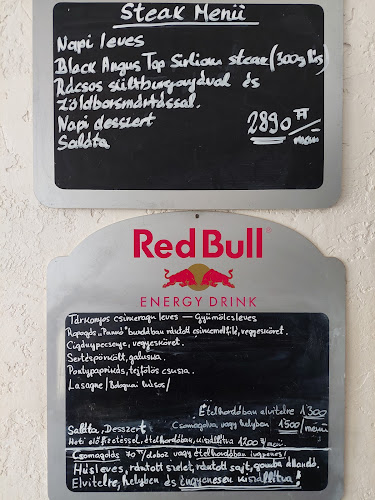 Steak Menü
Napi leves
Black Angus Top Sirlion steak (300g hús)
Rácsos sültburgonyával és
zöldborsmártással.
Napi desszert 2890 Ft/menü
Saláta
Red Bull
ENERGY DRINK
Tárkonyos csirkeragu leves — Gyümölcsleves
Ropogós "Pankó" bundában rántott csirkemellfilé, vegyesköret.
Cigánypecsenye, vegyesköret.
Sertéspörkölt, galuska.
Pontypaprikás, tejfölös csusza.
Lasagne /Bolognai húsos/
Ételhordóban elvitelre 1300
Saláta, Desszert. Csomagolva vagy helyben 1500/menü
Heti előfizetéssel, ételhordóban, kiszállítva 1200 Ft/menü.
Csomagolás 70 Ft/doboz vagy ételhordóban ingyenes!
Húsleves, rántott szelet, rántott sajt, gomba állandó,
Elvitelre, helyben és ingyenesen kiszállítva!